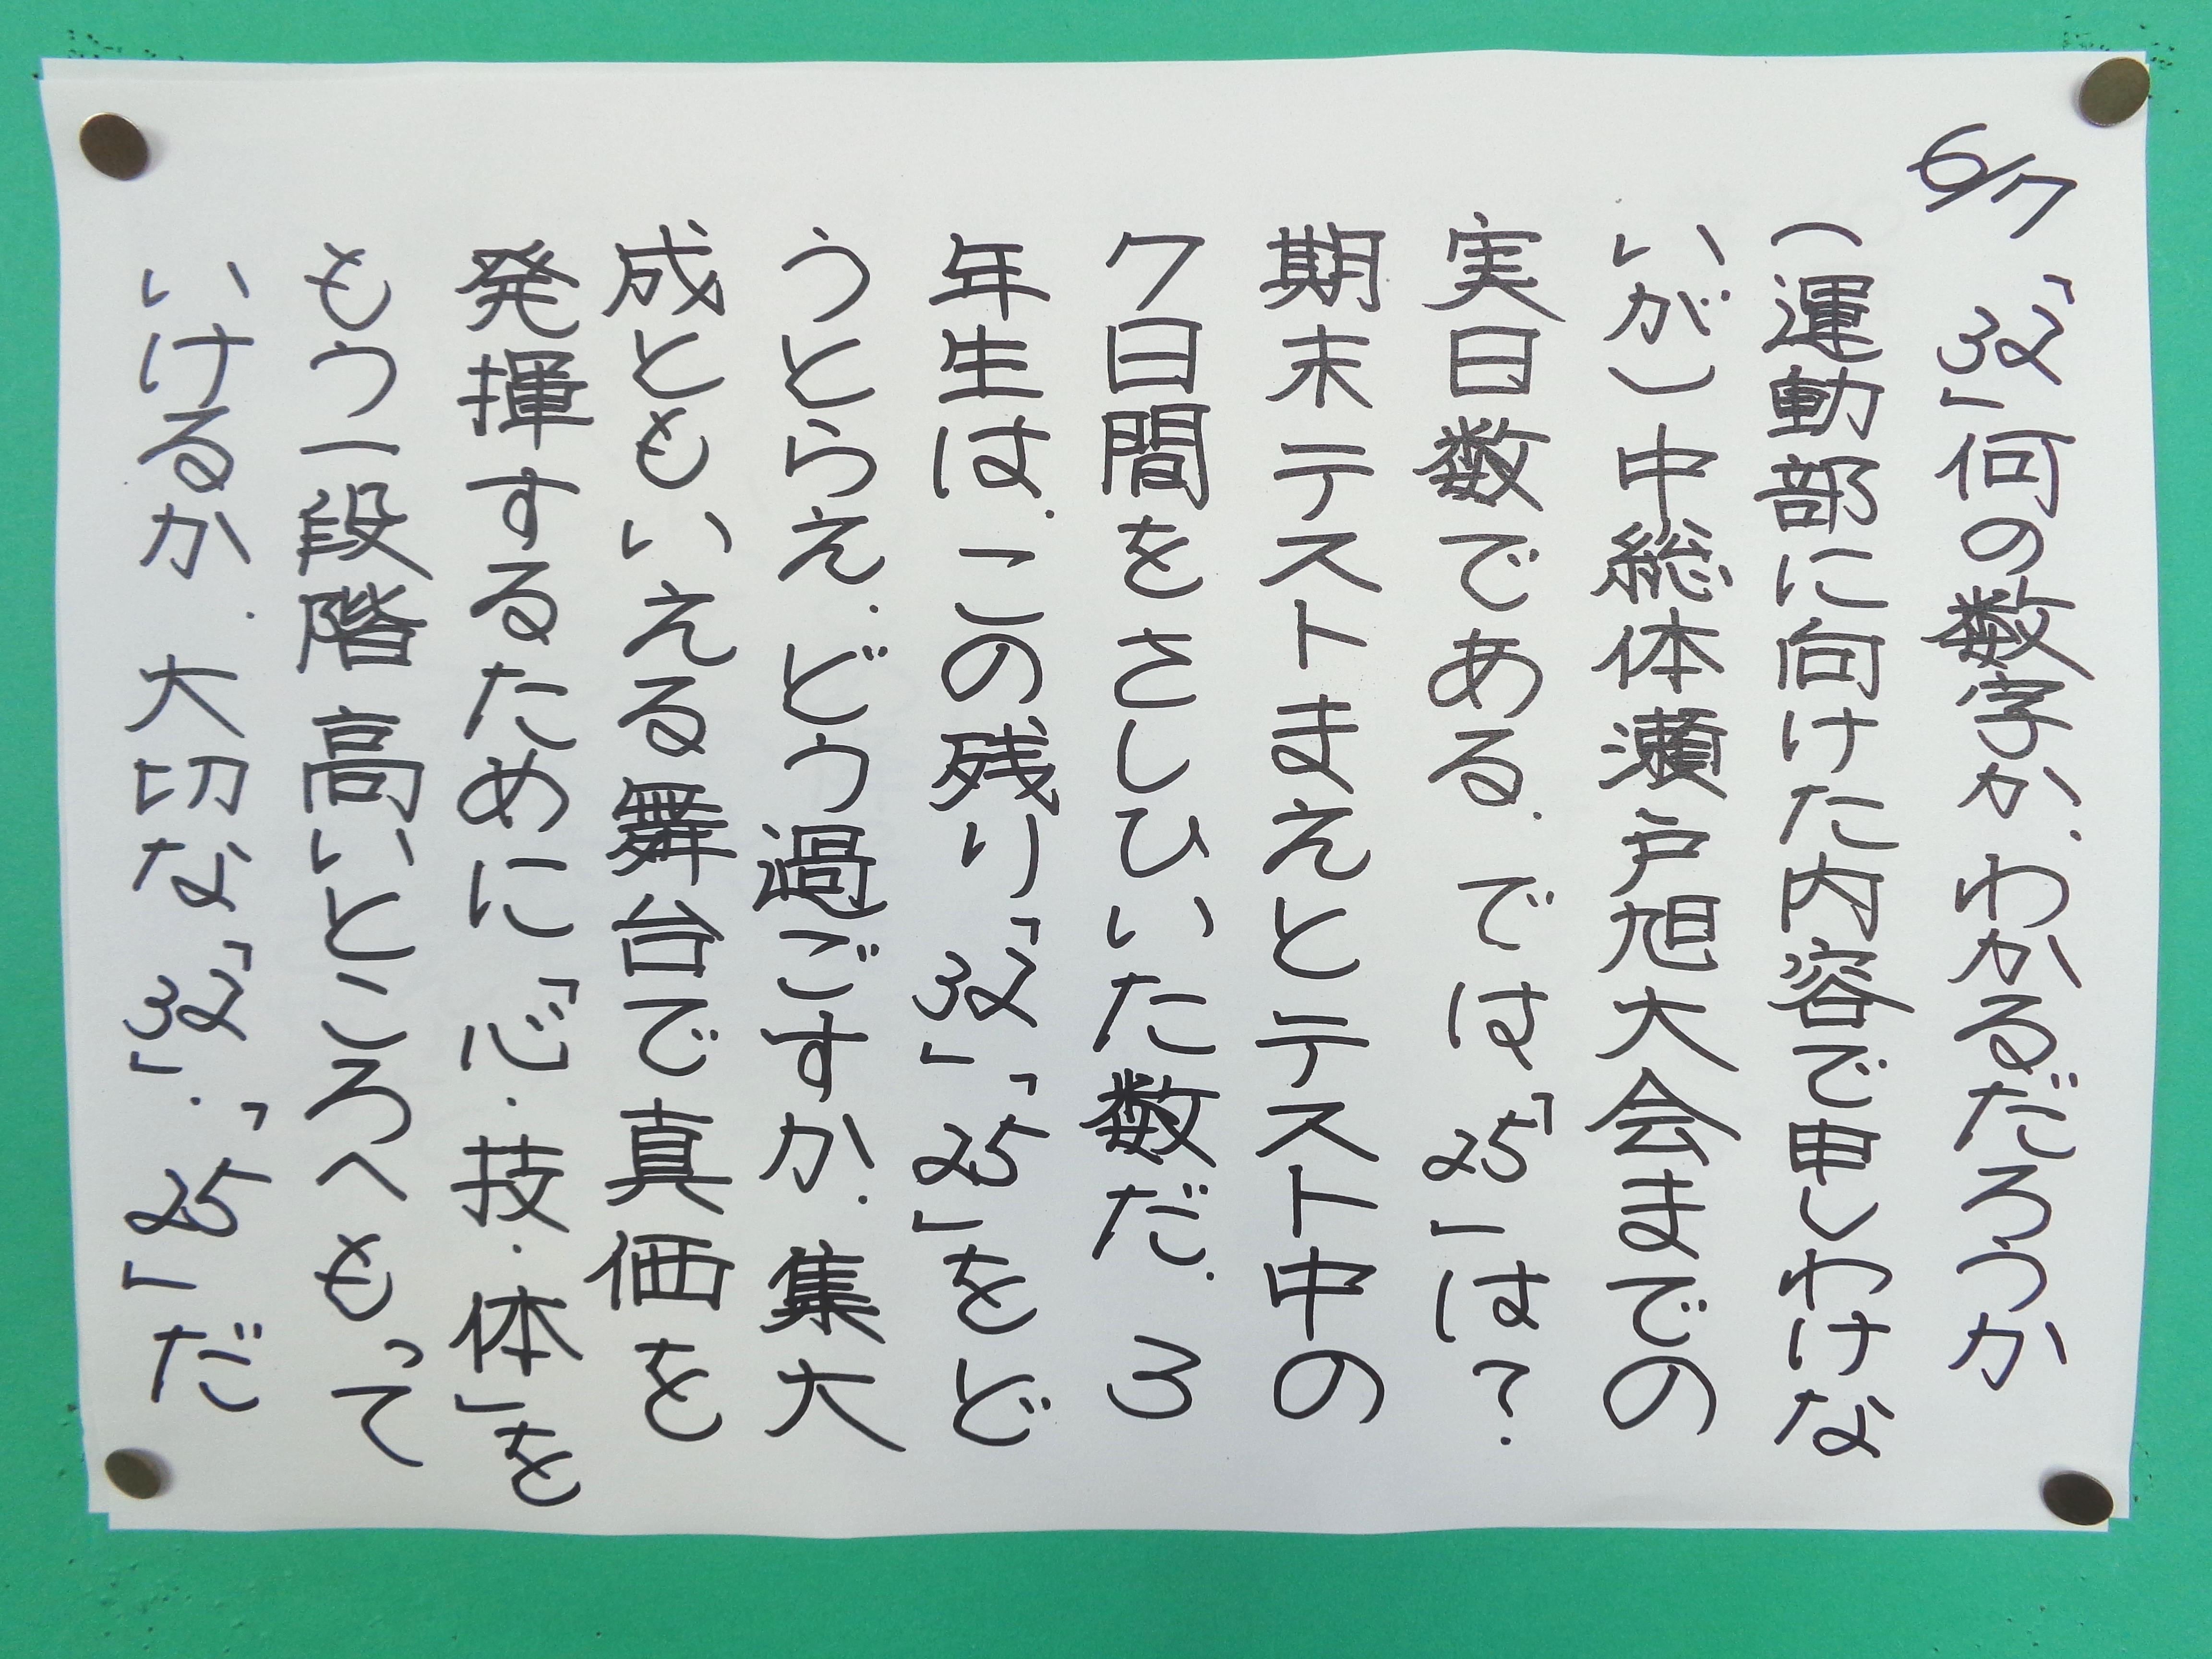 6/7
「32」何の数字か、わかるだろうか
(運動部に向けた内容で申しわけな
いが)中総体瀬戸旭大会までの
実日数である。では「25」は?
期末テストまえとテスト中の
7日間をさしひいた数だ。3
年生は、この残り「32」「25」をど
うとらえ、どう過ごすか。集大
成ともいえる舞台で真価を
発揮するために「心・技・体」を
もう一段階高いところへもって
いけるか。大切な「32」・「25」だ